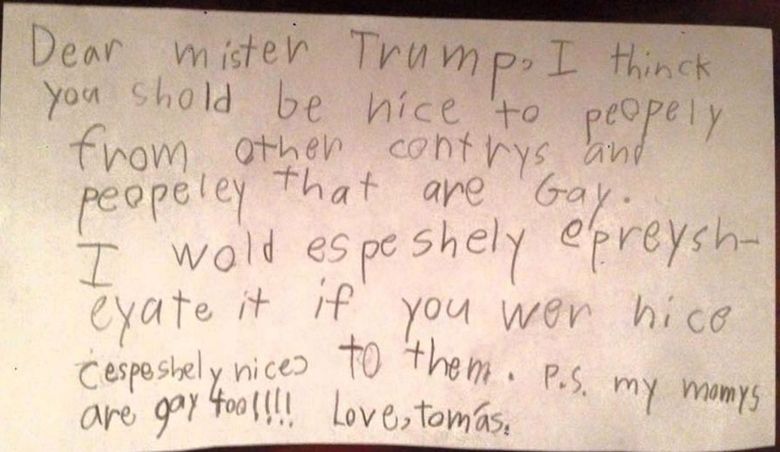 Dear mister Trump, I thinck
you shold be nice to peopely
from other contrys and
peopeley that are Gay.
I wold espeshely epreysh-
eyate it if you wer nice
(espeshely nice) to them. P.S. my momys
are gay too!!!! Love, tomás.